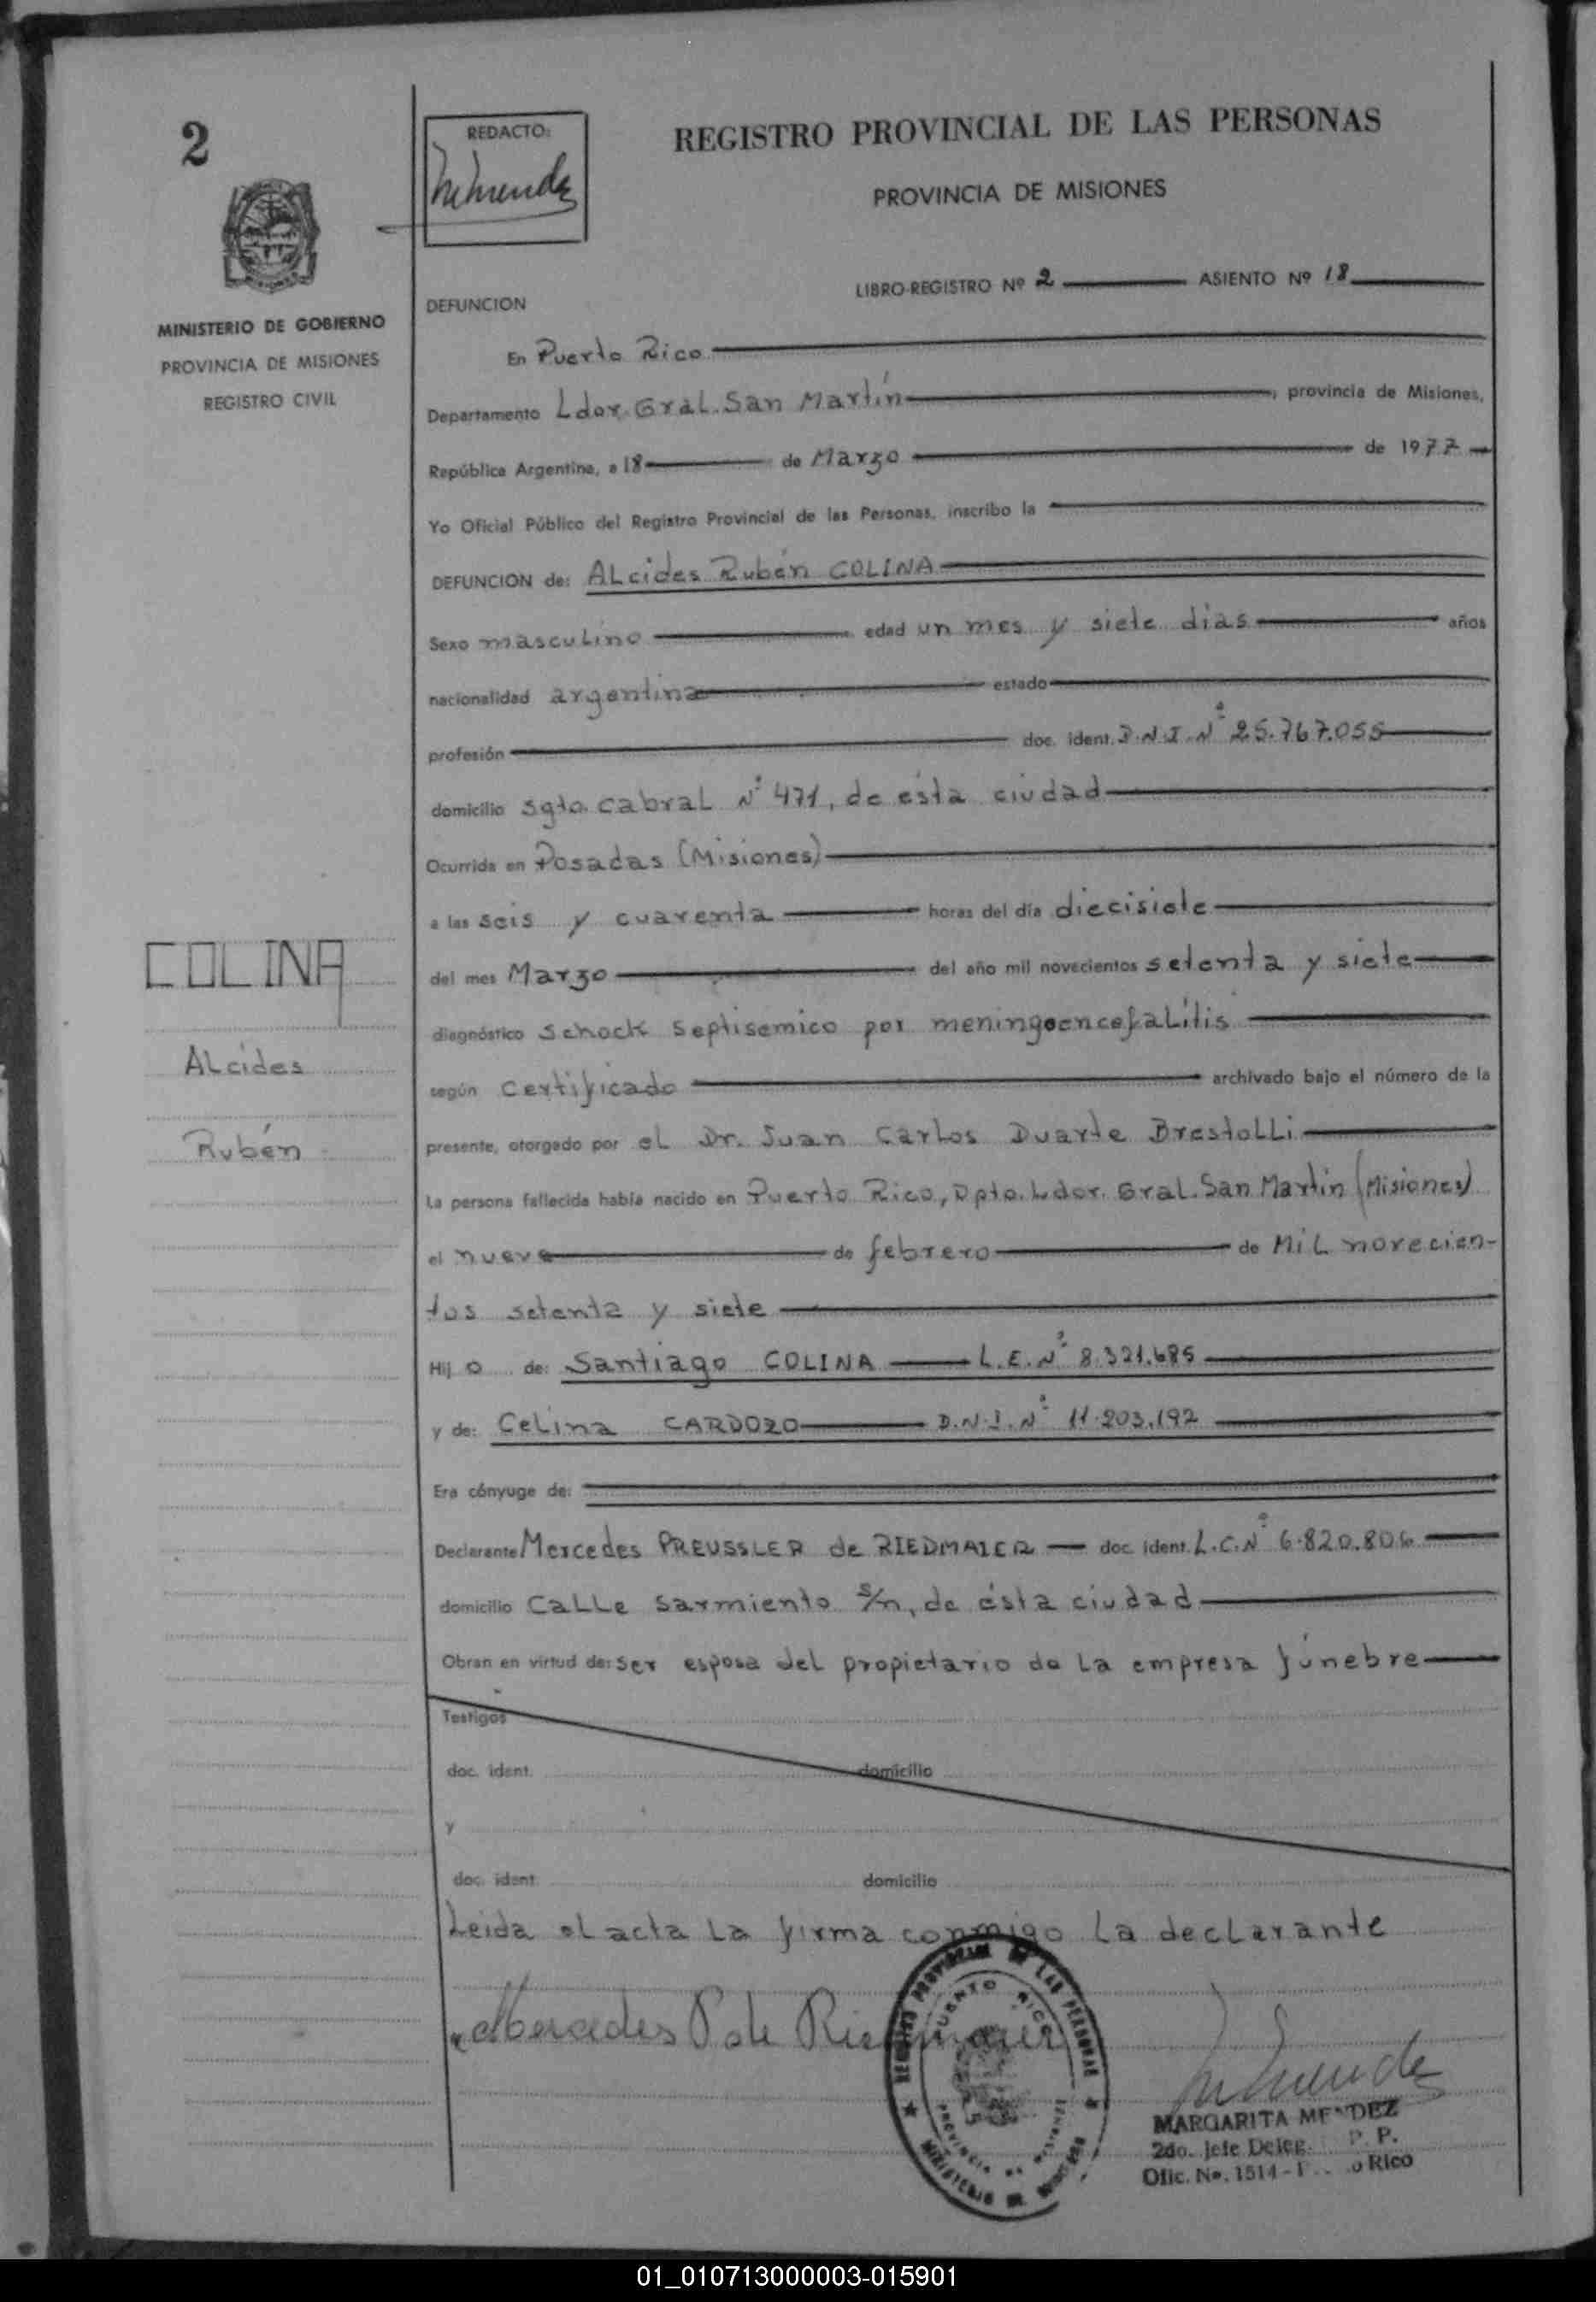 2
REDACTO:
REGISTRO PROVINCIAL DE LAS PERSONAS
PROVINCIA DE MISIONES
MINISTERIO DE GOBIERNO
PROVINCIA DE MISIONES
REGISTRO CIVIL
LIBRO-REGISTRO Nº 2 ASIENTO Nº 18
DEFUNCION
En Puerto Rico
Departamento Ldor. Gral. San Martín, provincia de Misiones,
República Argentina, a 18 de Marzo de 1977
Yo Oficial Público del Registro Provincial de las Personas, inscribo la
DEFUNCION de: Alcides Rubén COLINA
Sexo masculino edad un mes y siete dias años
nacionalidad argentina estado
profesión doc. ident. D.N.I. Nº 25.767.055
domicilio Sgto. Cabral Nº 471, de ésta ciudad
Ocurrida en Posadas (Misiones)
a las seis y cuarenta horas del día diecisiete
del mes Marzo del año mil novecientos setenta y siete
diagnóstico schock septisemico por meningoencefalitis
según certificado archivado bajo el número de la
presente, otorgado por el Dr. Juan Carlos Duarte Brestolli
La persona fallecida había nacido en Puerto Rico, Dpto. Ldor. Gral. San Martín (Misiones)
el nueve de febrero de Mil novecien-
tos setenta y siete
Hijo de: Santiago COLINA L.E. Nº 8.321.685
y de: Celina CARDOZO D.N.I. Nº 11.203.192
Era cónyuge de:
Declarante Mercedes PREUSSLER de RIEDMAIER doc. ident. L.C. Nº 6.820.806
domicilio Calle Sarmiento s/n, de ésta ciudad
Obran en virtud de: ser esposa del propietario de la empresa fúnebre
Testigos
doc. ident. domicilio
y
doc. ident. domicilio
Leida el acta la firma conmigo la declarante
Mercedes P de Riedmaier
COLINA
Alcides
Rubén
REGISTRO PROVINCIAL DE LAS PERSONAS
PUERTO RICO
PROVINCIA DE MISIONES
MINISTERIO DE GOBIERNO
MARGARITA MENDEZ
2do. Jefe Deleg. P. P.
Ofic. No. 1514 - Rico
01_010713000003-015901